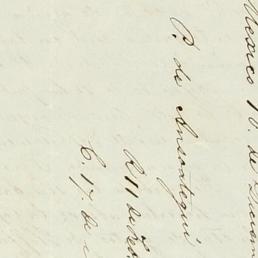 Mexico 10. de Diciem
P. de Ansoategui
R 11 de
C. 17. de